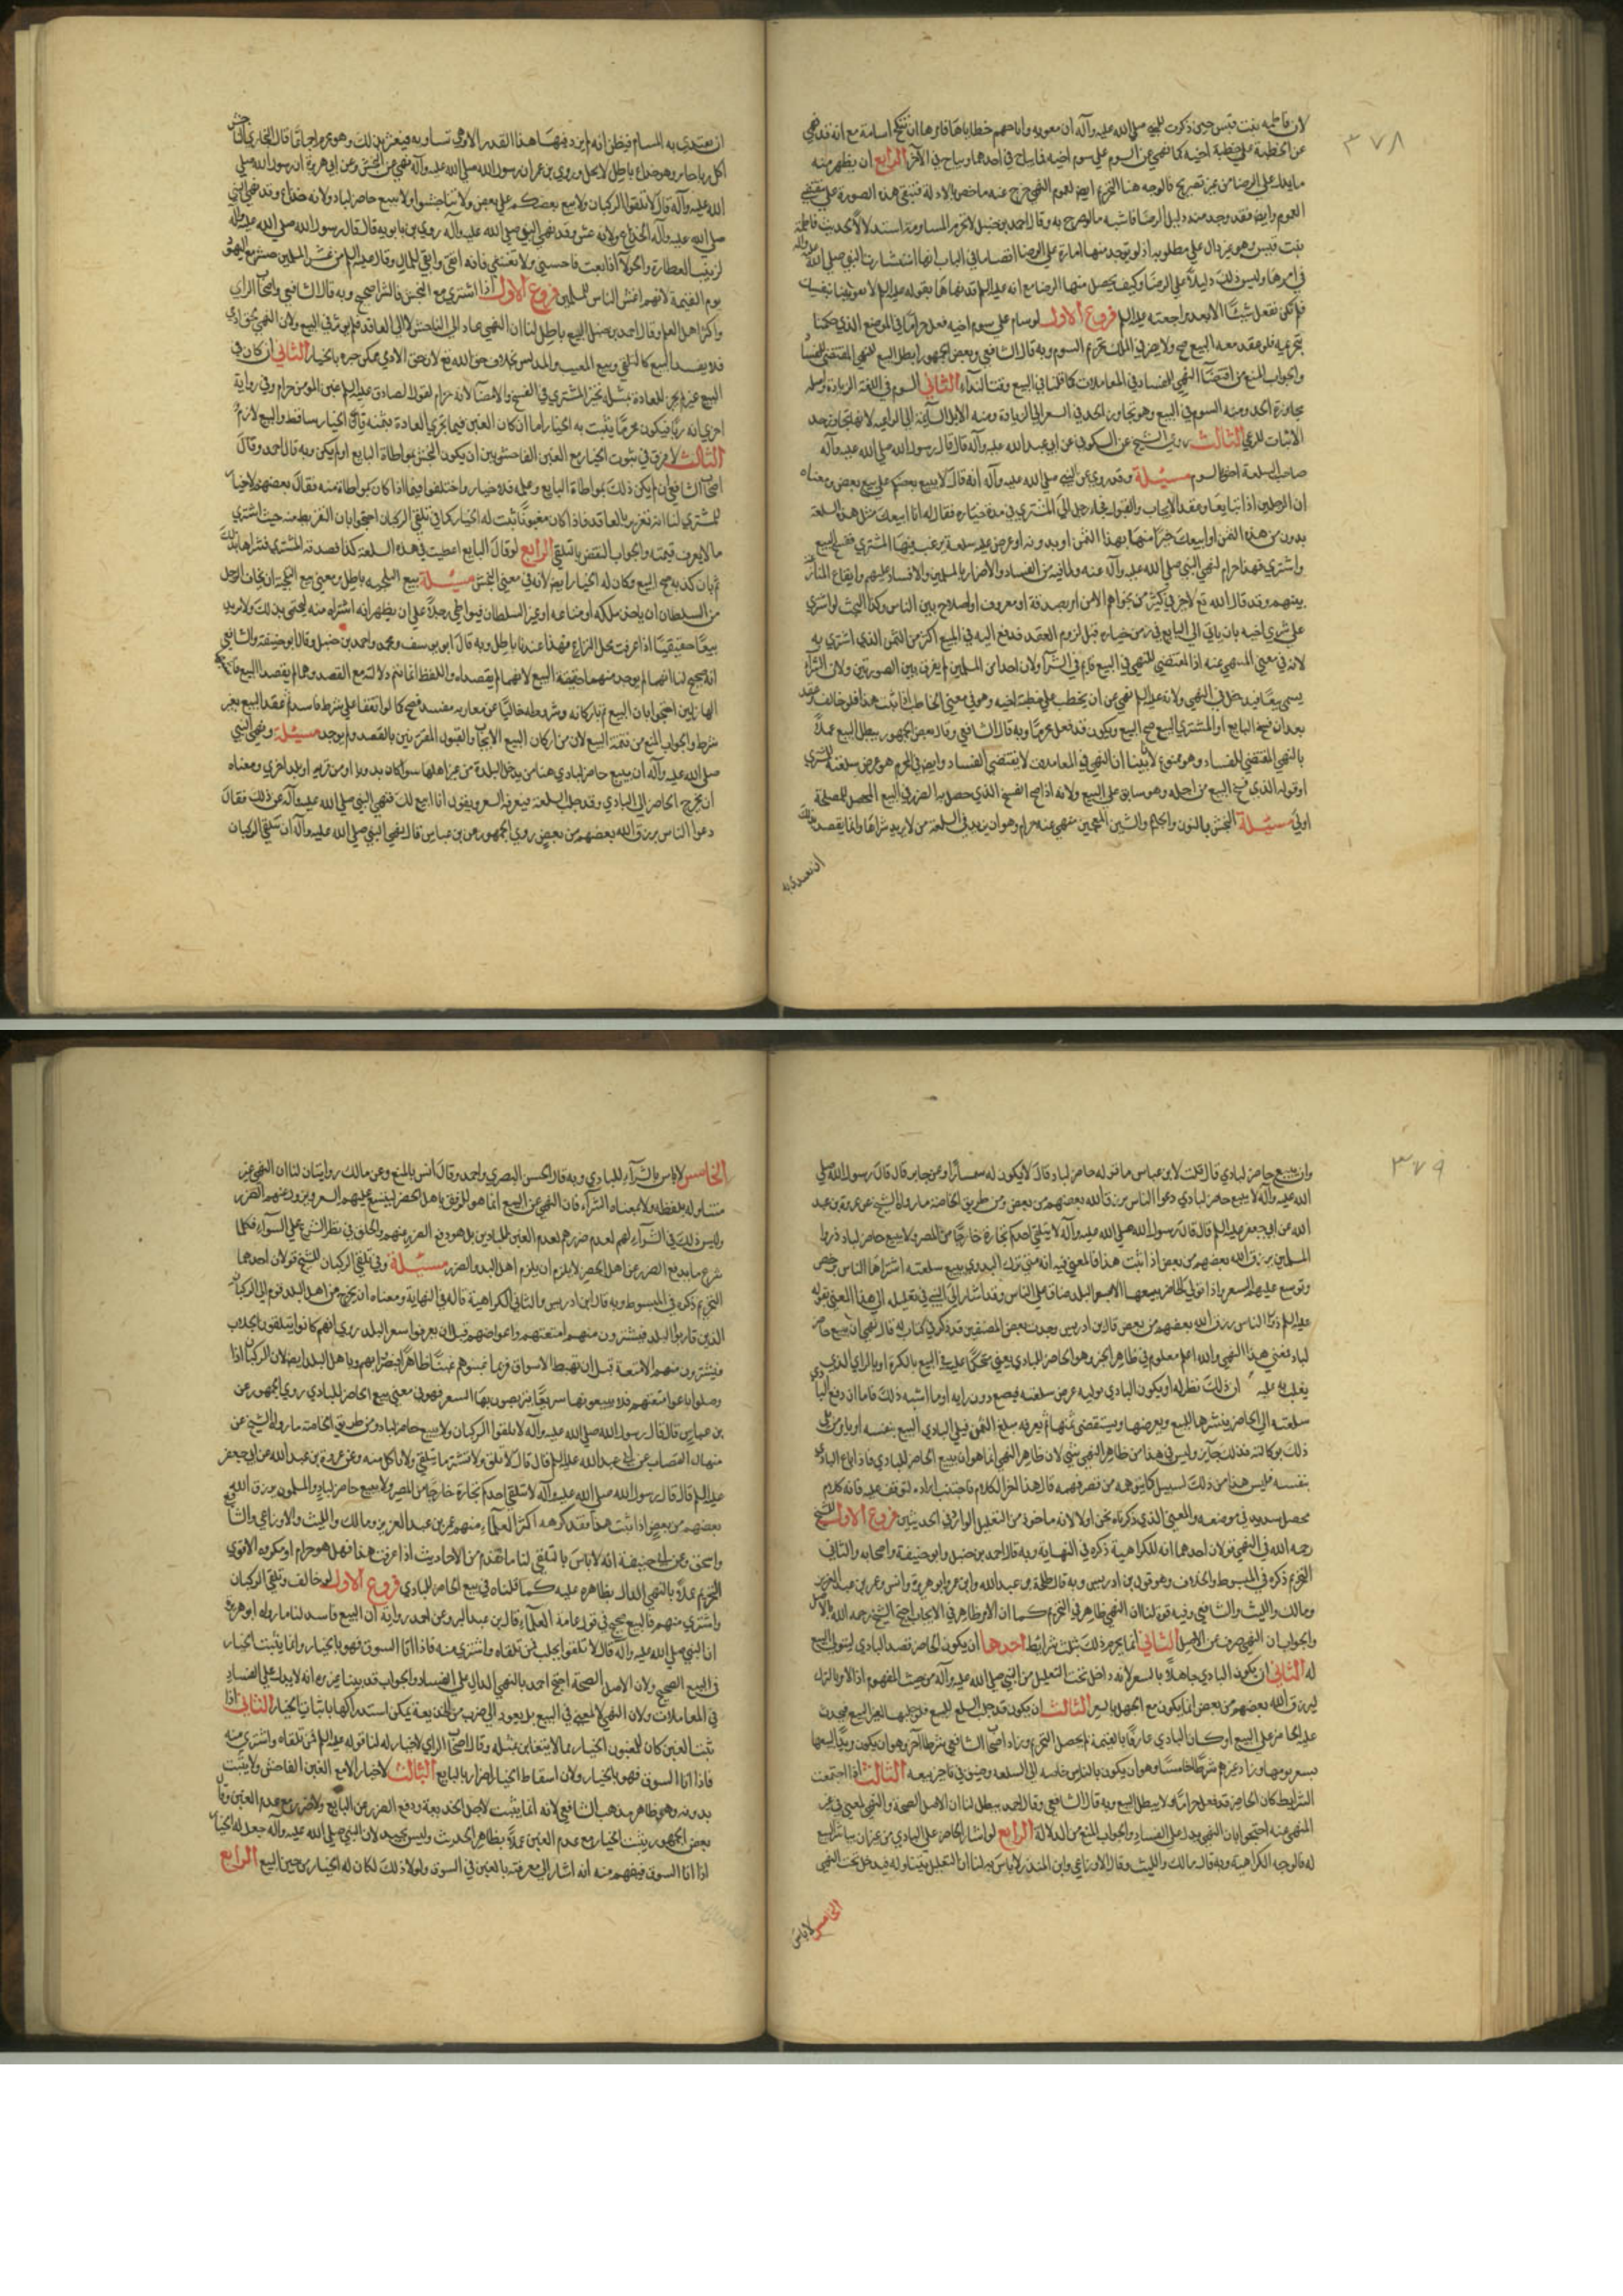 ٣٧٨
لان فاطمة بنت قيس حين ذكرت للنبي صلى الله عليه وآله ان معوية واباجهم خطباها فامرها ان تنكح اسامة مع انه قد نهى
عن الخطبة على خطبة اخيه كما نهى عن السوم على سوم اخيه فما يباح في احدهما يباح في الآخر الرابع ان يظهر منه
ما يدل على الرضا من غير تصريح فالوجه هنا التحريم ايضا لعموم النهي خرج عنه ما خص بالادلة فتبقى هذه الصورة على مقتضى
العموم وايضا فقد وجد منه دليل الرضا فاشبه ما لو صرح به وقال احمد بن حنبل لا تحرم المساومة استدلالا بحديث فاطمة
بنت قيس وهو غير دال على مطلوبه اذ لم توجد منها امارة على الرضا اقصى ما في الباب انها استشارت النبي صلى الله عليه وآله
في امرها وليس ذلك دليلا على الرضا وكيف يحصل منها الرضا مع انه عليه السلم قد نهاها بقوله عليه السلم لا تفوتينا بنفسك
فلم تكن تفعل شيئا الا بعد مراجعته عليه السلم فروع الاول لو سام على سوم اخيه فعل حراما في الموضع الذي حكمنا
بتحريمه فلو عقد معه البيع صح ولا يضر في الملك تحريم السوم وبه قال الشافعي وبعض الجمهور ابطل البيع للنهي المقتضي للفساد
والجواب المنع من اقتضاء النهي للفساد في المعاملات كما قلنا في البيع وقت النداء الثاني السوم في اللغة الزيادة واصله
مجاوزة الحد ومنه السوم في البيع وهو تجاوز الحد في السعر الى الزيادة ومنه الابل السائمة الى المراعي لانها تتجاوز حد
الاثبات للرعي الثالث روى الشيخ عن السكوني عن ابي عبد الله عليه السلم قال قال رسول الله صلى الله عليه وآله
صاحب السلعة احق بالسوم مسئلة وقد روي عن النبي صلى الله عليه وآله انه قال لا يبيع بعضكم على بيع بعض ومعناه
ان الرجلين اذا تبايعا وعقد الايجاب والقبول فجاء رجل الى المشتري في مدة خياره فقال له انا ابيعك مثل هذه السلعة
بدون من هذه الثمن او ابيعك خيرا منها بهذا الثمن او بدونه او عرض عليه سلعة يرغب فيها المشتري ففسخ البيع
واشترى فهذا حرام لنهي النبي صلى الله عليه وآله عنه ولما فيه من الفساد والاضرار بالمسلمين والافساد عليهم وايقاع التنافر
بينهم وقد قال الله تعالى لا خير في كثير من نجواهم الا من امر بصدقة او معروف او اصلاح بين الناس وكذا البحث لو اشترى
على شرى اخيه بان يأتي الى البايع في زمن خياره قبل لزوم العقد فدفع اليه في المبيع اكثر من الثمن الذي اشترى به
لانه في معنى المنهي عنه اذ المقتضي للنهي في البيع قائم في الشراء ولان احدا من المسلمين لم يفرق بين الصورتين ولان الشراء
يسمى بيعا فيدخل في النهي ولانه عليه السلم نهى عن ان يخطب على خطبة اخيه وهو في معنى الخاطب اذا ثبت هذا فلو خالف وعقد
بعد ان فسخ البايع او المشتري البيع صح البيع ويكون قد فعل محرما وبه قال الشافعي وقال بعض الجمهور يبطل البيع عملا
بالنهي المقتضي للفساد وهو ممنوع لما بينا ان النهي في المعاملات لا يقتضي الفساد وايضا فالمحرم هو عرض سلعته للمشتري
او قوله الذي فسخ البيع من اجله وهو سابق على البيع ولانه اذا صح الفسخ الذي حصل به الضرر فالبيع المحصل للمصلحة
اولى مسئلة النجش بالنون والجيم والشين المعجمين منهي عنه حرام وهو ان يزيد في السلعة من لا يريد شراها وانما يقصد بذلك
ان يقتدى به
ان يقتدى به المستام فيظن انه لم يزد فيها هذا القدر الا وهي تساويه فيغتر بذلك وهو محرم اجماعا قال البخاري الناجش
اكل ربا خاين وهو خداع باطل لا يحل وروي بن عمر ان رسول الله صلى الله عليه وآله نهى عن النجش وعن ابي هريرة ان رسول الله صلى
الله عليه وآله قال لا تلقوا الركبان ولا يبع بعضكم على بعض ولا تناجشوا ولا يبيع حاضر لباد ولانه خداع وقد نهى النبي
صلى الله عليه وآله الخداع ولانه غش وقد نهى النبي صلى الله عليه وآله روى بن بابويه قال قال رسول الله صلى الله عليه وآله
لزينب العطارة والحولآ اذا بعت فاحسني ولا تغشي فانه اتقى وابقى للمال وقال عليه السلم من غش المسلمين حشر مع اليهود
يوم القيمة لانهم اغش الناس للمسلمين فروع الاول اذا اشترى مع النجش فالشرا صحيح وبه قال الشافعي واصحاب الراي
واكثر اهل العلم وقال احمد بن حنبل البيع باطل لنا ان النهي عاد الى الناجش لا الى العاقد فلم يؤثر في البيع ولان النهي لحق ادمي
فلا يفسد البيع كالتلقي وبيع المعيب والمدلس بخلاف حق الله تعالى لان حق الادمي ممكن جبره بالخيار الثاني ان كان في
البيع غبن لم تجر العادة بمثله تخير المشتري في الفسخ والامضاء لانه حرام لقول الصادق عليه السلم غبن المؤمن حرام وفي رواية
اخرى انه ربا فيكون محرما يثبت به الخيار اما ان كان الغبن فيما تجري العادة بمثله فان الخيار ساقط والبيع لازم
الثالث لا فرق في ثبوت الخيار مع الغبن الفاحش بين ان يكون النجش بمواطاة البايع او لم يكن وبه قال احمد وقال
اصحاب الشافعي ان لم يكن ذلك بمواطاة البايع وعلمه فلا خيار واختلفوا فيما اذا كان بمواطاة منه فقال بعضهم لا خيار
للمشتري لنا انه تغرير بالعاقد فاذا كان مغبونا ثبت له الخيار كما في تلقي الركبان احتجوا بان التفريط منه حيث اشترى
ما لا يعرف قيمته والجواب النقض بالتلقي الرابع لو قال البايع اعطيت في هذه السلعة كذا فصدقه المشتري فشراها بذلك
ثم بان كذبه صح البيع وكان له الخيار ايضا لانه في معنى النجش مسئلة بيع التلجئة باطل ومعنى بيع التلجئة ان يخاف الرجل
من السلطان ان ياخذ ملكه او متاعه او غير السلطان فيواطي رجلا على ان يظهر انه اشتراه منه ليحتمى بذلك ولا يريد
بيعا حقيقيا اذا عرفت محل النزاع فهذا عندنا باطل وبه قال ابو يوسف ومحمد واحمد بن حنبل وقال ابو حنيفة والشافعي
انه صحيح لنا انهما لم يوجد منهما حقيقة البيع لانهما لم يقصداه واللفظ انما تتم دلالته مع القصد وهما لم يقصدا البيع فكانا
الهازلين احتجوا بان البيع تم باركانه وشروطه خاليا عن مقارنه مفسد فصح كما لو اتفقا على شرط فاسد ثم عقد البيع بغير
شرط والجواب المنع من تتمة البيع لان من اركان البيع الايجاب والقبول المقترنين بالقصد ولم يوجد مسئلة ونهى النبي
صلى الله عليه وآله ان يبيع حاضر لبادي هنا من يدخل البلدة من غير اهلها سواء كان بدويا او من قرية او بلد اخرى ومعناه
ان يخرج الحاضر الى البادي وقد جلب السلعة فيعرفه السعر ويقول انا ابيع لك فنهى النبي صلى الله عليه وآله عن ذلك فقال
دعوا الناس يرزق الله بعضهم من بعض روى الجمهور عن بن عباس قال نهى النبي صلى الله عليه وآله ان يتلقى الركبان
٣٧٩
وان يبيع حاضر لبادي قال قلت لابن عباس ما قوله حاضر لباد قال لا يكون له سمسارا وعن جابر قال قال رسول الله صلى
الله عليه وآله لا يبيع حاضر لبادي دعوا الناس يرزق الله بعضهم من بعض ومن طريق الخاصة ما رواه الشيخ عن عروة بن عبد
الله عن ابي جعفر عليه السلم قال قال رسول الله صلى الله عليه وآله لا يتلقى احدكم تجارة خارجا من المصر ولا يبيع حاضر لباد ذروا
المسلمين يرزق الله بعضهم من بعض اذا ثبت هذا فالمعنى فيه انه متى ترك البدوي يبيع سلعته اشتراها الناس برخص
وتوسع عليهم السعر واذا تولى الحاضر بيعها الا بسعر البلد ضاق على الناس وقد اشار النبي في تعليله الى هذا المعنى بقوله
عليه السلم ذروا الناس يرزق الله بعضهم من بعض قال بن ادريس وجدت بعض المصنفين قد ذكر في كتاب له قال نهى ان يبيع حاضر
لباد فمعنى هذا النهي والله اعلم معلوم في ظاهر الخبر وهو الحاضر للبادي يعني متحكما عليه في البيع بالكره او بالراي الذي
يغلب به عليه ان ذلك نظر له او يكون البادي يوليه عرض سلعته فيبيع دون رايه او ما اشبه ذلك فاما ان دفع البادي
سلعته الى الحاضر ينشرها للبيع ويعرضها ويستقصي ثمنها ثم يعرفه مبلغ الثمن فيلي البادي البيع بنفسه او يامر من يلي
ذلك بوكالته فذلك جايز وليس في هذا من ظاهر النهي شيء لان ظاهر النهي انما هو ان يبيع الحاضر للبادي فاذا باع البادي
بنفسه فليس هذا من ذلك بسبيل كما يتوهمه من قصر فهمه قال هذا اخر الكلام
رحمه الله في النهي قولان احدهما انه للكراهية ذكره في النهاية وبه قال احمد بن حنبل وابو حنيفة واصحابه والثاني
التحريم ذكره في المبسوط والخلاف وهو قول بن ادريس وبه قال طلحة بن عبد الله وابن عمر وابو هريرة وانس وعمر بن عبد العزيز
ومالك والليث والشافعي وفيه قوة لنا ان النهي ظاهر في التحريم كما ان الامر ظاهر في الايجاب احتج الشيخ رحمه الله بالاصل
والجواب ان النهي صرف عن الاصل الثاني انما يحرم ذلك بثلث شرايط احدها ان يكون الحاضر قصد البادي ليتولى البيع
له الثاني ان يكون البادي جاهلا بالسعر لانه داخل تحت التعليل من النبي صلى الله عليه وآله من حيث المفهوم
ليرزق الله بعضهم من بعض انما يكون مع الجهل بالسعر الثالث ان يكون قد جلب السلع للبيع
على الحاضر على البيع او كان البادي عارفا بالقيمة لم يحصل التحريم وزاد اصحاب الشافعي شرطا آخر وهو ان يكون مريدا لبيعها
بسعر يومها وزاد غيرهم شرطا خامسا وهو ان يكون بالناس حاجة الى السلعة وضيق في تاخير بيعه الثالث اذا اجتمعت
الشرايط كان الحاضر قد فعل حراما ولا يبطل البيع وبه قال الشافعي وقال احمد يبطل لنا ان الاصل الصحة والنهي لمعنى في غير
المنهي عنه احتجوا بان النهي يدل على الفساد والجواب المنع من الدلالة الرابع لو اشار الحاضر على البادي من غير ان يباشر البيع
له فالوجه الكراهية وبه قال مالك والليث وقال الاوزاعي وابن المنذر لا باس به لنا ان التعليل يتناوله فيدخل تحت النهي
الخامس لا باس
الخامس لا باس بالشراء للبادي وبه قال الحسن البصري واحمد وقال انس بالمنع وعن مالك روايتان لنا ان النهي غير
متناول له بلفظه ولا بمعناه الشراء فان النهي عن البيع انما هو للرفق باهل الحضر ليتسع عليهم السعر ويزول عنهم الضرر
وليس ذلك في الشراء لهم لعدم ضررهم لعدم الغبن للبادين بل هو دفع الضرر عنهم والخلق في نظر الشرع على السواء فكما
شرع ما يدفع الضرر عن اهل الحضر لا يلزم ان يلزم اهل البدو الضرر مسئلة وفي تلقي الركبان للشيخ قولان احدهما
التحريم ذكره في المبسوط وبه قال ابن ادريس والثاني الكراهية قاله في النهاية ومعناه ان يخرج من اهل البلد قوم الى الركبان
الذين قاربوا البلد فيشترون منهم امتعتهم واعواضهم قبل ان يعرفوا سعر البلد روي انهم كانوا يتلقون الجلاب
فيشترون منهم الامتعة قبل ان تهبط الاسواق فربما غبنوهم غبنا ظاهرا فيضرا بهم وباهل البلد ايضا لان الركبان اذا
وصلوا باعوا امتعتهم فلا يبيعونها سريعا يتربصون بها السعر فهو في معنى بيع الحاضر للبادي روى الجمهور عن
بن عباس قال قال رسول الله صلى الله عليه وآله لا تلقوا الركبان ولا يبيع حاضر لباد ومن طريق الخاصة ما رواه الشيخ عن
منهال القصاب عن ابي عبد الله عليه السلم قال قال لا تلق ولا تشتر ما يتلقى ولا تاكل منه وعن عروة بن عبد الله عن ابي جعفر
عليه السلم قال قال رسول الله صلى الله عليه وآله لا يتلقى احدكم تجارة خارجا من المصر ولا يبيع حاضر لباد والمسلمون يرزق الله
بعضهم من بعض اذا ثبت هذا فقد كرهه اكثر العلماء منهم عمر بن عبد العزيز ومالك والليث والاوزاعي والشافعي
واسحق وعن ابي حنيفة انه لا باس بالتلقي لنا ما تقدم من الاحاديث اذا عرفت هذا فهل هو حرام او مكروه الاقوى
التحريم عملا بالنهي الدال بظاهره عليه كما قلناه في بيع الحاضر للبادي فروع الاول لو خالف وتلقى الركبان
واشترى منهم فالبيع صحيح في قول عامة العلماء وقال بن عبد البر وعن احمد رواية ان البيع فاسد لنا ما رواه ابو هريرة
ان النبي صلى الله عليه وآله قال لا تلقوا الجلب فمن تلقاه واشترى منه فاذا اتى السوق فهو بالخيار وانما يثبت الخيار
في البيع الصحيح ولان الاصل الصحة احتج احمد بالنهي الدال على الفساد والجواب قد بينا غير مرة انه لا يدل على الفساد
في المعاملات ولان النهي لا لمعنى في البيع بل يعود الى ضرب من الخديعة يمكن استدراكها باثبات الخيار الثاني اذا
ثبت الغبن كان للمغبون الخيار بما لا يتغابن بمثله وقال اصحاب الراي لا خيار له لنا قوله عليه السلم فمن تلقاه واشترى منه
فاذا اتى السوق فهو بالخيار ولان اسقاط الخيار اضرار بالبايع الثالث لا خيار الا مع الغبن الفاحش ولا يثبت
بدونه وهو ظاهر مذهب الشافعي لانه انما يثبت لاجل الخديعة ودفع الضرر عن البايع ولا ضرر مع عدم الغبن وقال
بعض الجمهور يثبت الخيار مع عدم الغبن عملا بظاهر الحديث وليس بجيد لان النبي صلى الله عليه وآله جعل له الخيار
اذا اتى السوق فيفهم منه انه اشار الى معرفته بالغبن في السوق ولولا ذلك لكان له الخيار من حين البيع الرابع